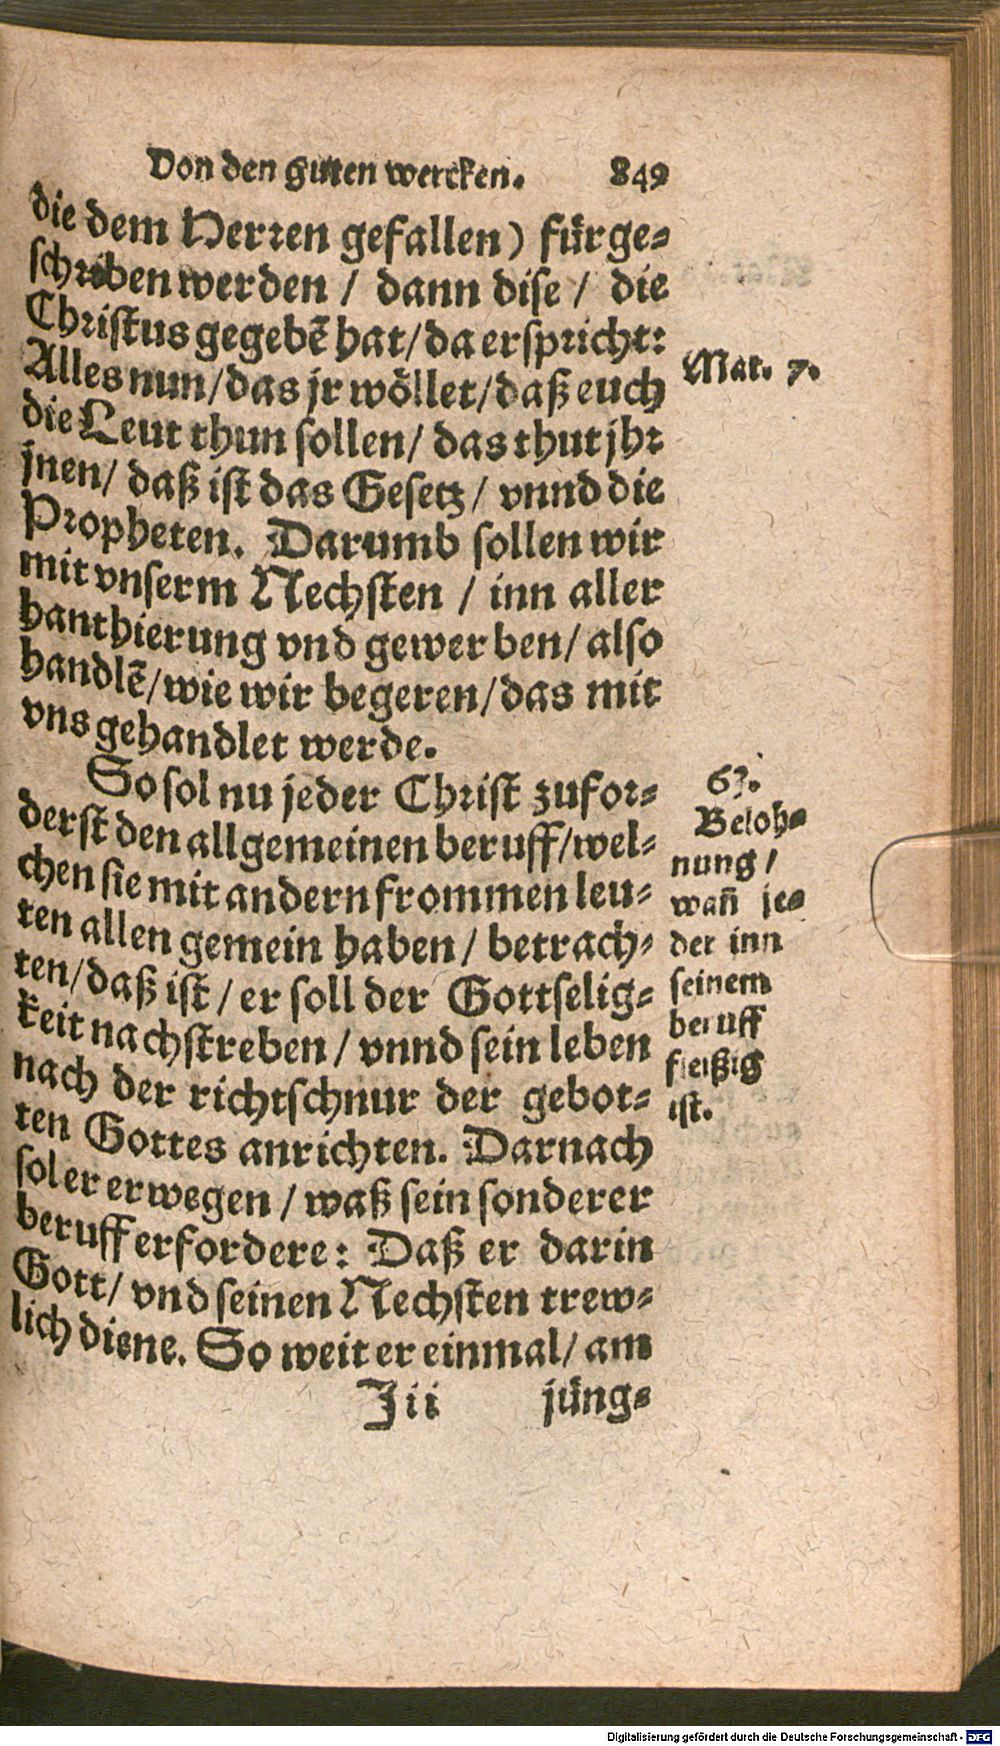 Von den guten wercken. 849
die dem Herren gefallen) fürge-
schriben werden / dann dise / die
Christus gegebẽ hat/da er spricht:
Alles nun/das jr wöllet/daß euch
die Leut thun sollen/ das thut jhr
jnen/ daß ist das Gesetz / vnnd die
Propheten. Darumb sollen wir
mit vnserm Nechsten / inn aller
hanthierung vnd gewerben/ also
handlẽ/wie wir begeren/das mit
vns gehandlet werde.
So sol nu jeder Christ zufor-
derst den allgemeinen beruff/wel-
chen sie mit andern frommen leu-
ten allen gemein haben/ betrach-
ten/daß ist / er soll der Gottselig-
keit nachstreben / vnnd sein leben
nach der richtschnur der gebot-
ten Gottes anrichten. Darnach
sol er erwegen / waß sein sonderer
beruff erfordere: Daß er darin
Gott/ vnd seinen Nechsten trew-
lich diene. So weit er einmal/ am
Jii jüng-
Mat. 7.
63.
Beloh-
nung /
wañ je-
der inn
seinem
beruff
fleißig
ist.
Digitalisierung gefördert durch die Deutsche Forschungsgemeinschaft - DFG